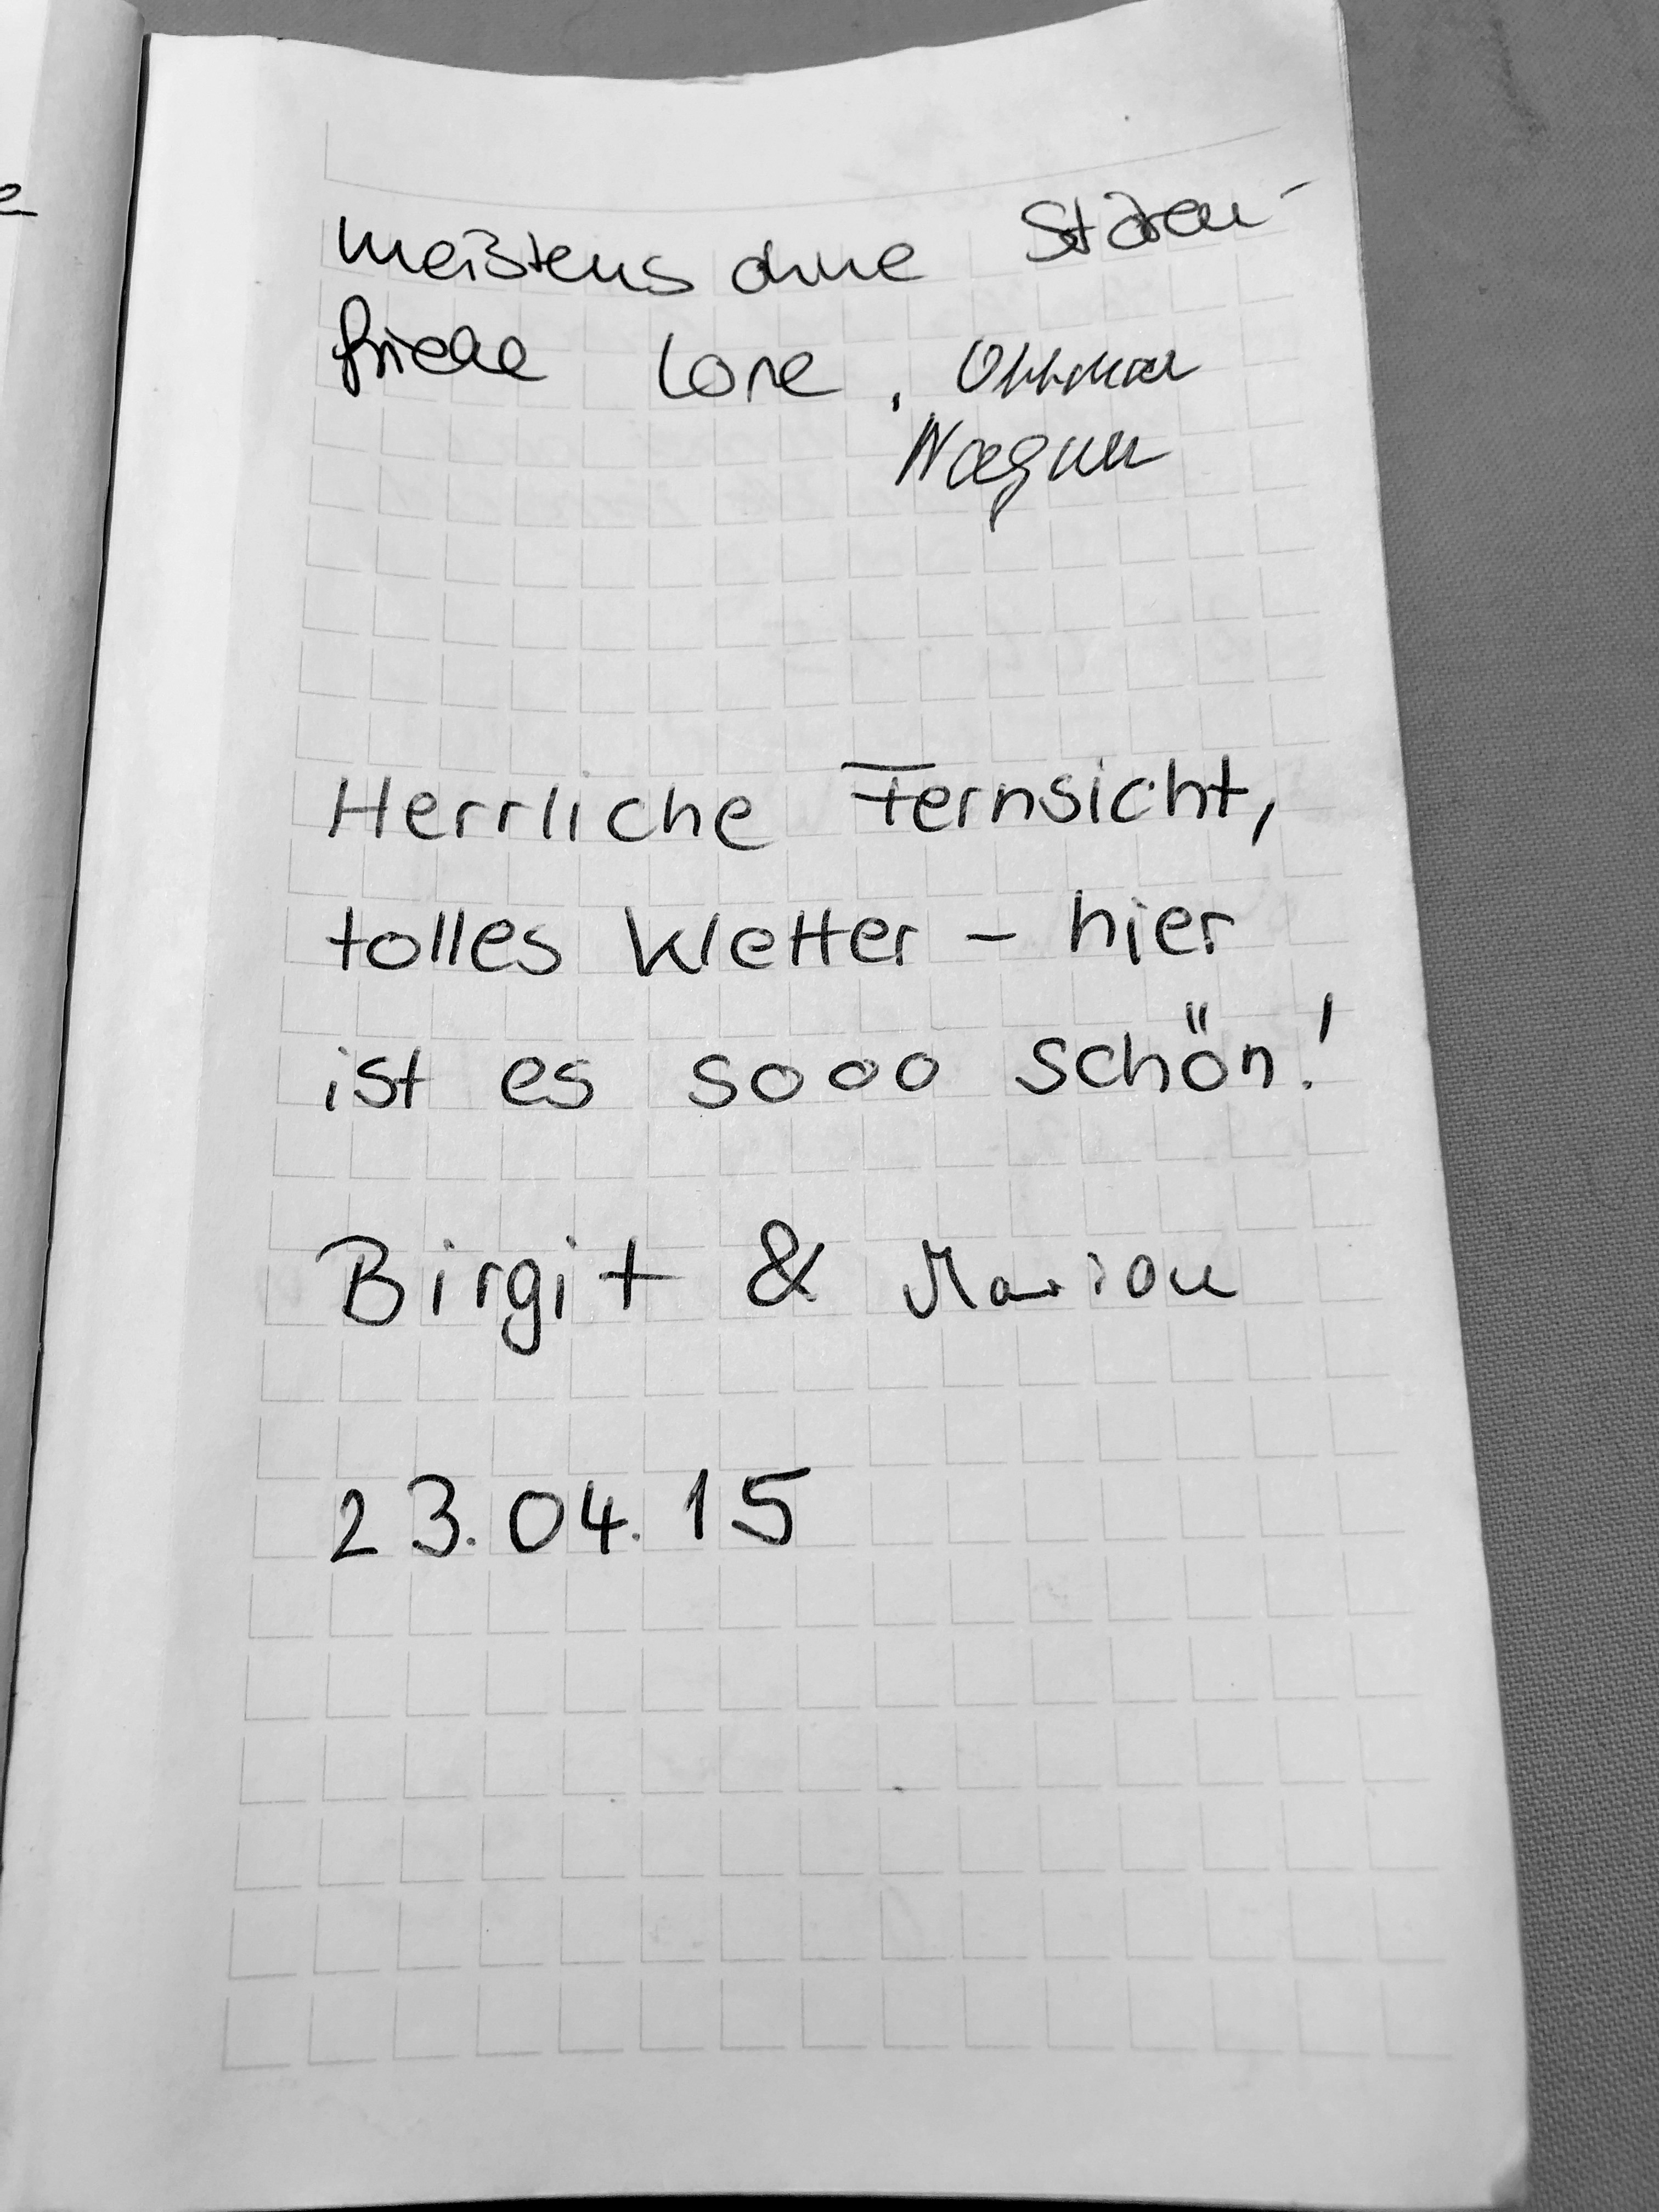 meistens ohne Stören-
friede Lore, Ottmar
Wagner
Herrliche Fernsicht,
tolles Wetter – hier
ist es sooo schön!
Birgit & Marion
23.04.15